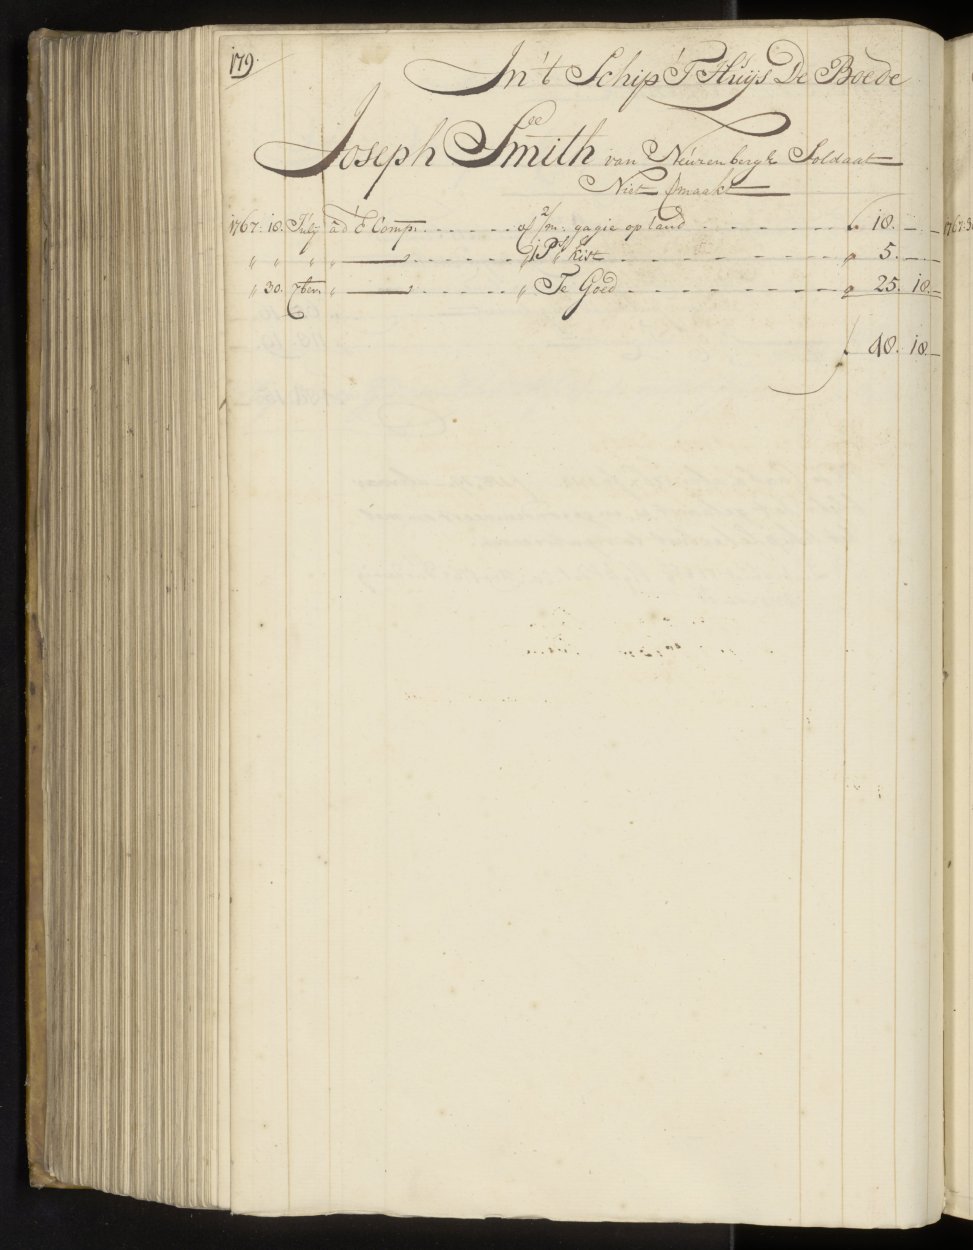 179.
In't Schip 'T Huys De Boede
Joseph Smith van Neurenbergh Soldaat
Niet gemaakt
1767: 18. July ad E Comp. . . . . . of 2/m: gagie op land . . . . . ƒ 18. — —
" " " " —— . . . . . " 1 Ps kist . . . . . " 5. — —
" 30. 7ber " —— . . . . . " Te Goed . . . . . " 25. 18. —
ƒ 48. 18. —
1767: